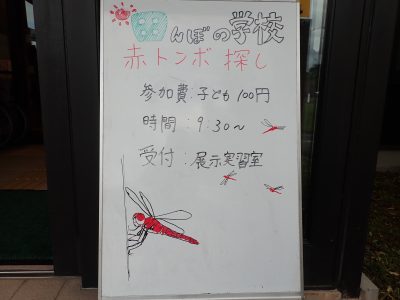 田んぼの学校
赤トンボ 探し
参加費:子ども100円
時間:9:30～
受付:展示実習室